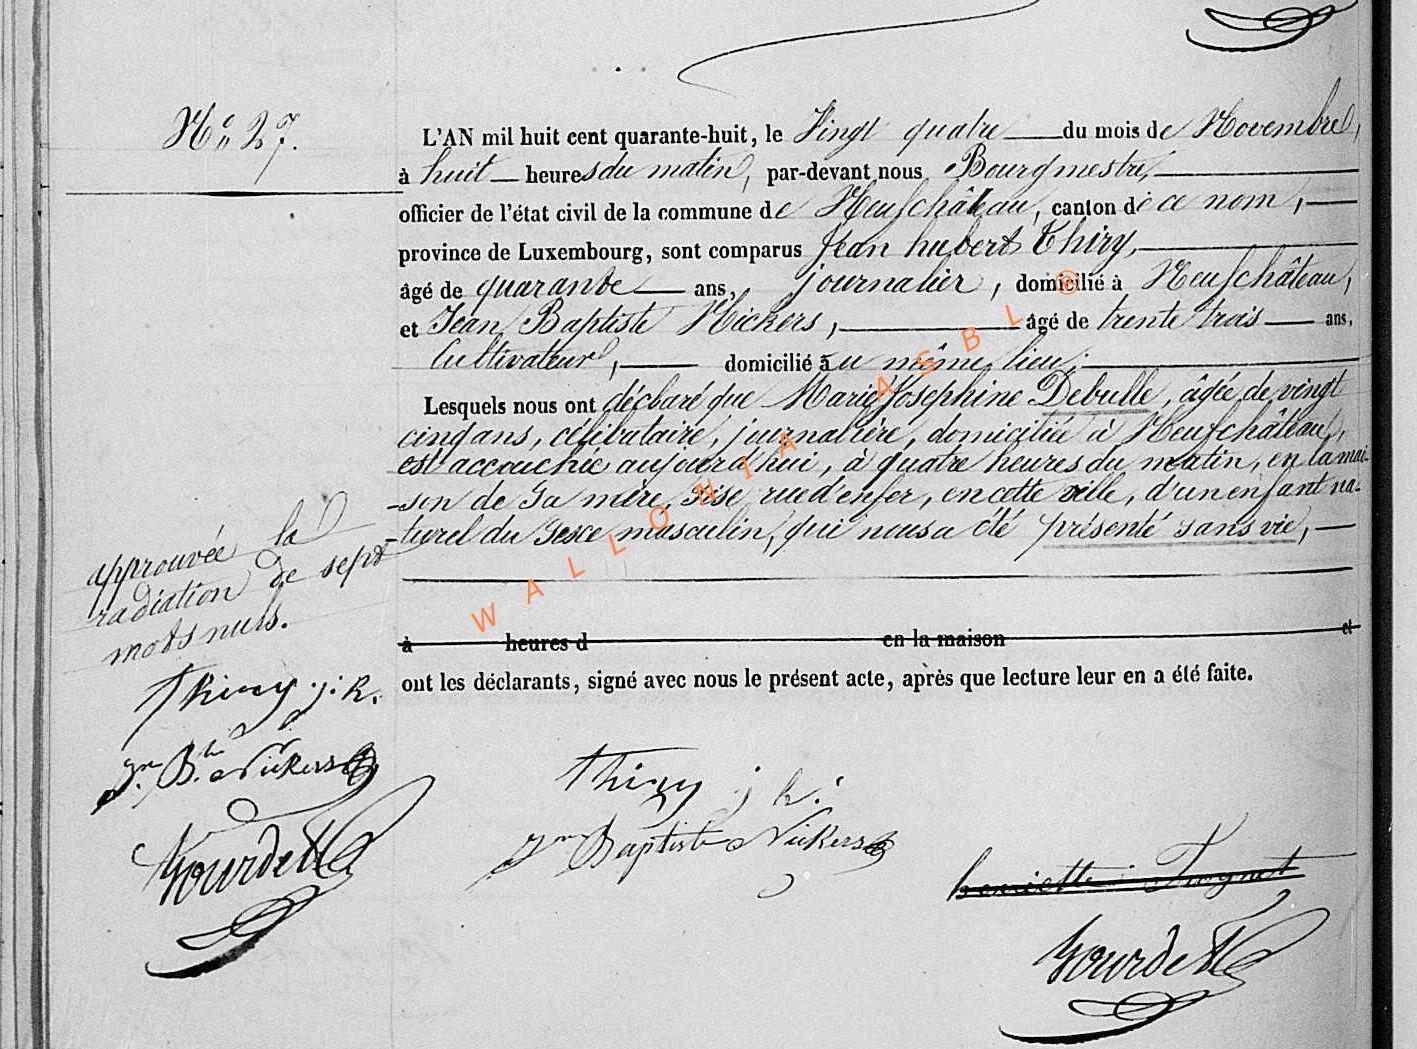 N° 27.
L'AN mil huit cent quarante-huit, le Vingt quatre du mois de Novembre,
à huit heures du matin, par-devant nous Bourgmestre,
officier de l'état civil de la commune de Neufchâteau, canton de ce nom,
province de Luxembourg, sont comparus Jean hubert Thiry,
âgé de quarante ans, journalier, domicilié à Neufchâteau,
et Jean Baptiste Nickers, âgé de trente trois ans,
Cultivateur, domicilié au même lieu;
Lesquels nous ont déclaré que Marie Josephine Debulle, âgée de vingt
cinq ans, célibataire, journalière, domiciliée à Neufchâteau,
est accouchée aujourd'hui, à quatre heures du matin, en la mai-
-son de sa mère, sise rue d'enfer, en cette ville, d'un enfant na-
-turel du sexe masculin, qui nous a été présenté sans vie,
à heures d en la maison et
ont les déclarants, signé avec nous le présent acte, après que lecture leur en a été faite.
approuvée la
radiation de sept
mots nuls.
thiry j. h.
Jn Bte Nickers
Gourdet
thiry j h.
Jn Baptiste Nickers
henriette
Gourdet
WALLONIA ASBL ©